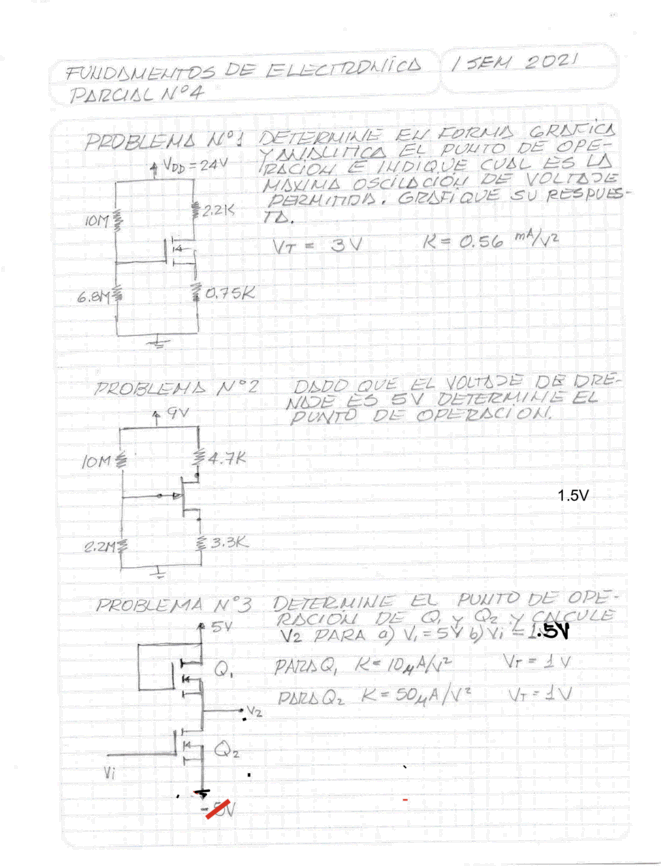 FUNDAMENTOS DE ELECTRONICA 1 SEM 2021
PARCIAL Nº4
PROBLEMA Nº1 DETERMINE EN FORMA GRAFICA
Y ANALITICA EL PUNTO DE OPE-
RACION E INDIQUE CUAL ES LA
MAXIMA OSCILACIÓN DE VOLTAJE
PERMITIDA. GRAFIQUE SU RESPUES-
TA.
VDD = 24V
10M
2.2K
VT = 3V K = 0.56 mA/V²
6.8M
0.75K
PROBLEMA Nº2 DADO QUE EL VOLTAJE DE DRE-
NAJE ES 5V DETERMINE EL
PUNTO DE OPERACION.
9V
10M
4.7K
1.5V
2.2M
3.3K
PROBLEMA Nº3 DETERMINE EL PUNTO DE OPE-
RACION DE Q1 Y Q2 Y CALCULE
V2 PARA a) Vi = 5V b) Vi = 1.5V
5V
Q1
PARA Q1 K = 10μA/V² VT = 1V
PARA Q2 K = 50μA/V² VT = 1V
V2
Q2
Vi
-5V